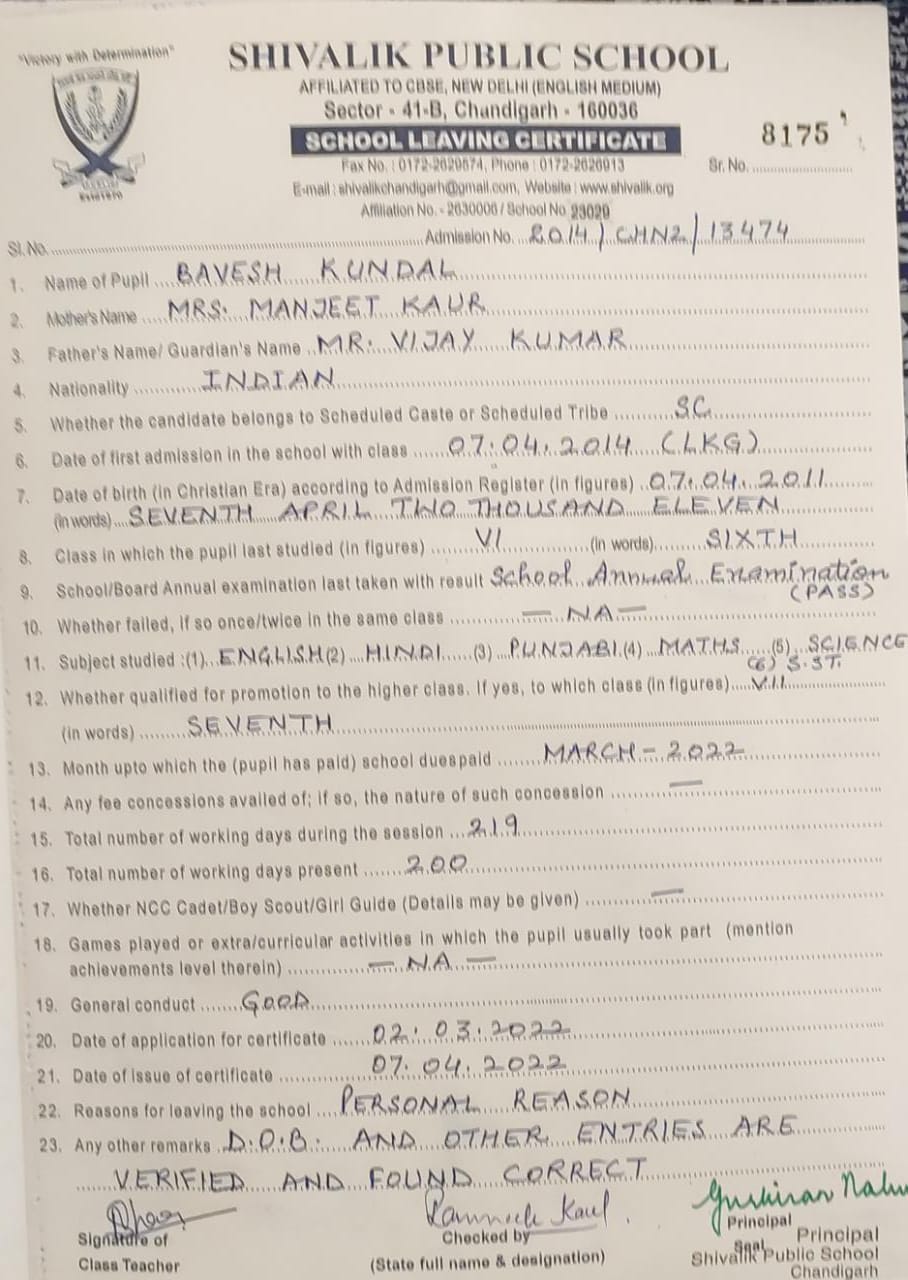 "Victory with Determination"
SHIVALIK PUBLIC SCHOOL
AFFILIATED TO CBSE, NEW DELHI (ENGLISH MEDIUM)
Sector - 41-B, Chandigarh - 160036
SCHOOL LEAVING CERTIFICATE
8175
Fax No. : 0172-2629674, Phone : 0172-2626913
Sr. No.
E-mail : shivalikchandigarh@gmail.com, Website : www.shivalik.org
Affiliation No. - 2630006 / School No 23020
Sl. No. Admission No. 2014/CHN2/13474
1. Name of Pupil BAVESH KUNDAL
2. Mother's Name MRS. MANJEET KAUR
3. Father's Name/ Guardian's Name MR. VIJAY KUMAR
4. Nationality INDIAN
5. Whether the candidate belongs to Scheduled Caste or Scheduled Tribe SC
6. Date of first admission in the school with class 07.04.2014 (LKG)
7. Date of birth (in Christian Era) according to Admission Register (in figures) 07.04.2011
(in words) SEVENTH APRIL TWO THOUSAND ELEVEN
8. Class in which the pupil last studied (in figures) VI (in words) SIXTH
9. School/Board Annual examination last taken with result School Annual Examination
(PASS)
10. Whether failed, if so once/twice in the same class — NA —
11. Subject studied :(1) ENGLISH (2) HINDI (3) PUNJABI (4) MATHS (5) SCIENCE
(6) S.ST.
12. Whether qualified for promotion to the higher class. If yes, to which class (in figures) VII
(in words) SEVENTH
13. Month upto which the (pupil has paid) school duespaid MARCH - 2022
14. Any fee concessions availed of; if so, the nature of such concession —
15. Total number of working days during the session 219
16. Total number of working days present 200
17. Whether NCC Cadet/Boy Scout/Girl Guide (Details may be given) —
18. Games played or extra/curricular activities in which the pupil usually took part (mention
achievements level therein) — NA —
19. General conduct GOOD
20. Date of application for certificate 02.03.2022
21. Date of issue of certificate 07.04.2022
22. Reasons for leaving the school PERSONAL REASON
23. Any other remarks D.O.B. AND OTHER ENTRIES ARE
VERIFIED AND FOUND CORRECT
Kaul
Signature of
Class Teacher
Checked by
(State full name & designation)
Principal
Seal
Principal
Shivalik Public School
Chandigarh